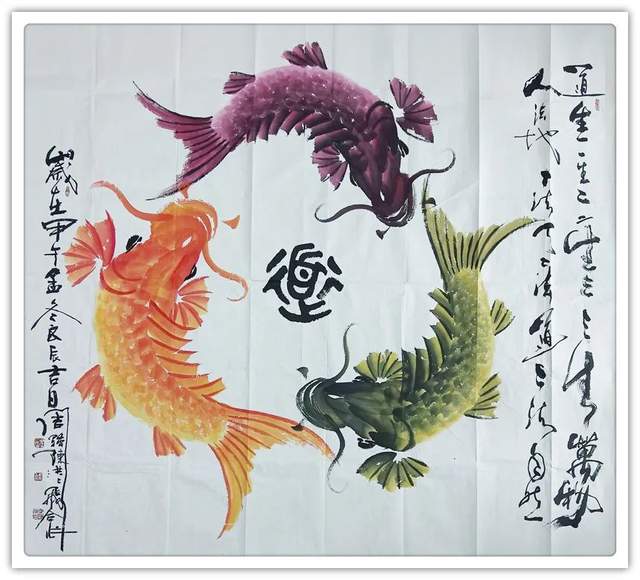 道生一一生二二生三三生萬物
人法地地法天天法道道法自然
道
歲在甲午孟冬良辰吉日